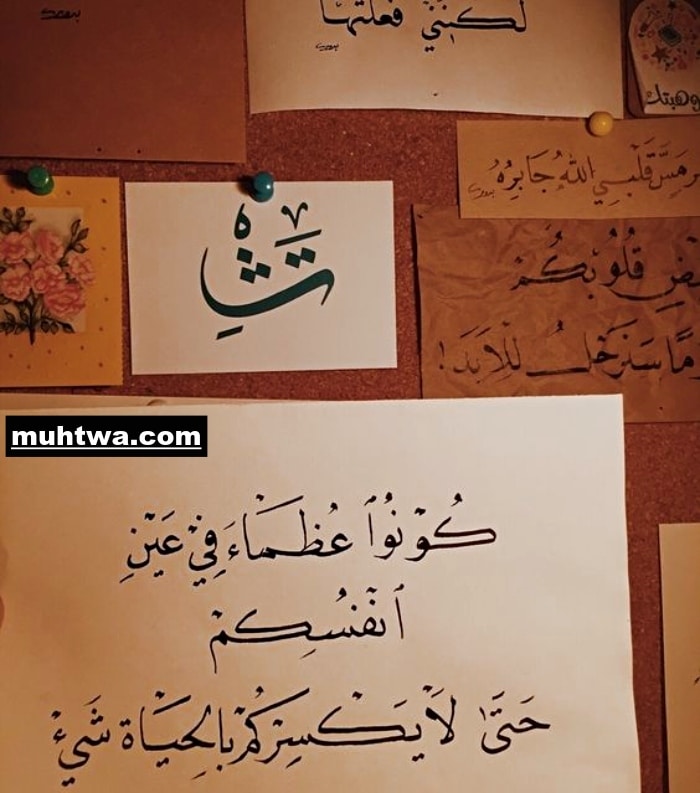 لكنني فعلتها
وهبتك
مسَّ قلبي اللهُ جابِرُهُ
قُلُوبكُمْ
مَا سَنَرحَلُ لِلأبَد!
muhtwa.com
كُوْنُوُا عُظَمَاءَ فِيْ عَيْنِ
اَنْفُسِكمْ
حَتَىٰ لَا يَكْسِرَكُمْ بالحِيَاة شَيْءْ